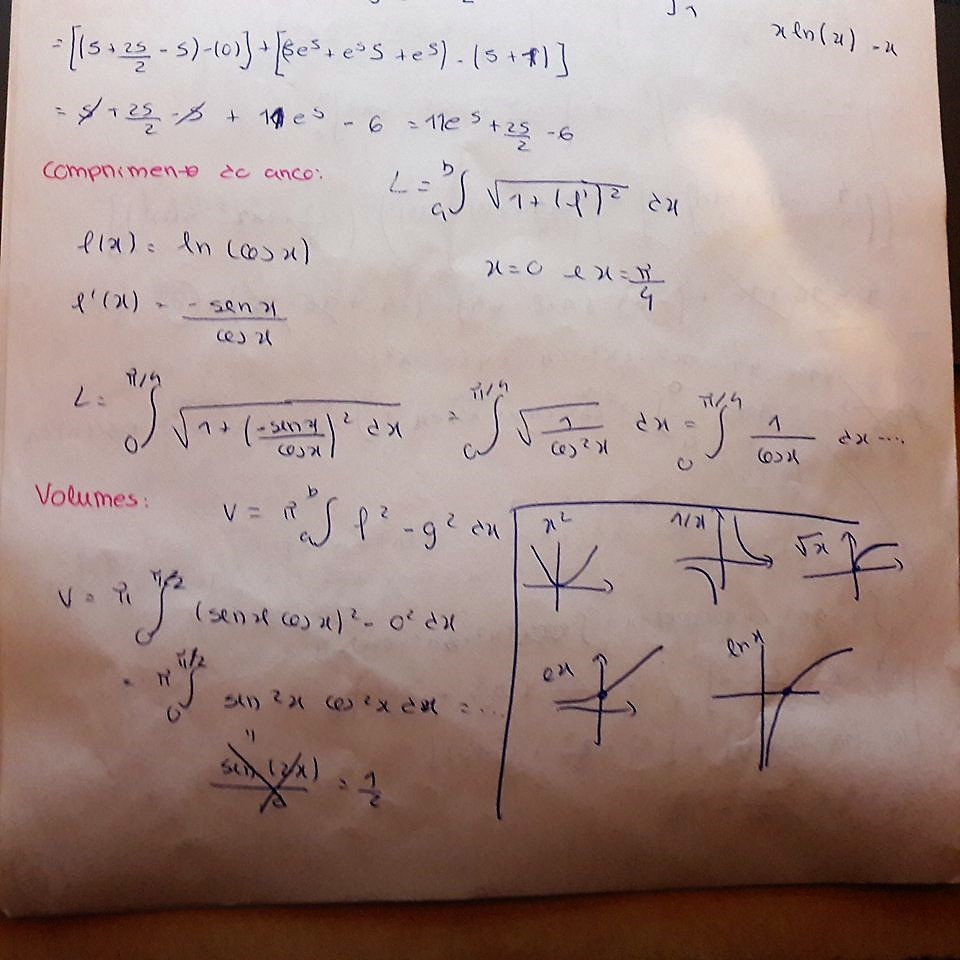 x ln(x) - x
= [(5 + 25/2 - 5) - (0)] + [5e^5 + e^5 5 + e^5) - (5 + 1)]
= 5 + 25/2 - 5 + 11e^5 - 6 = 11e^5 + 25/2 - 6
Comprimento de arco:
L = a∫b √1 + (f')² dx
f(x) = ln (cos x)
x = 0 e x = π/4
f'(x) = -sen x / cos x
L = 0∫π/4 √1 + (-sen x / cos x)² dx = 0∫π/4 √1/cos²x dx = 0∫π/4 1/cos x dx ...
Volumes:
V = π a∫b f² - g² dx
x²
1/x
√x
V = π 0∫π/2 (sen x cos x)² - 0² dx
= π 0∫π/2 sen²x cos²x dx = ...
e^x
ln x
sen (2x) / 2 = 1/2